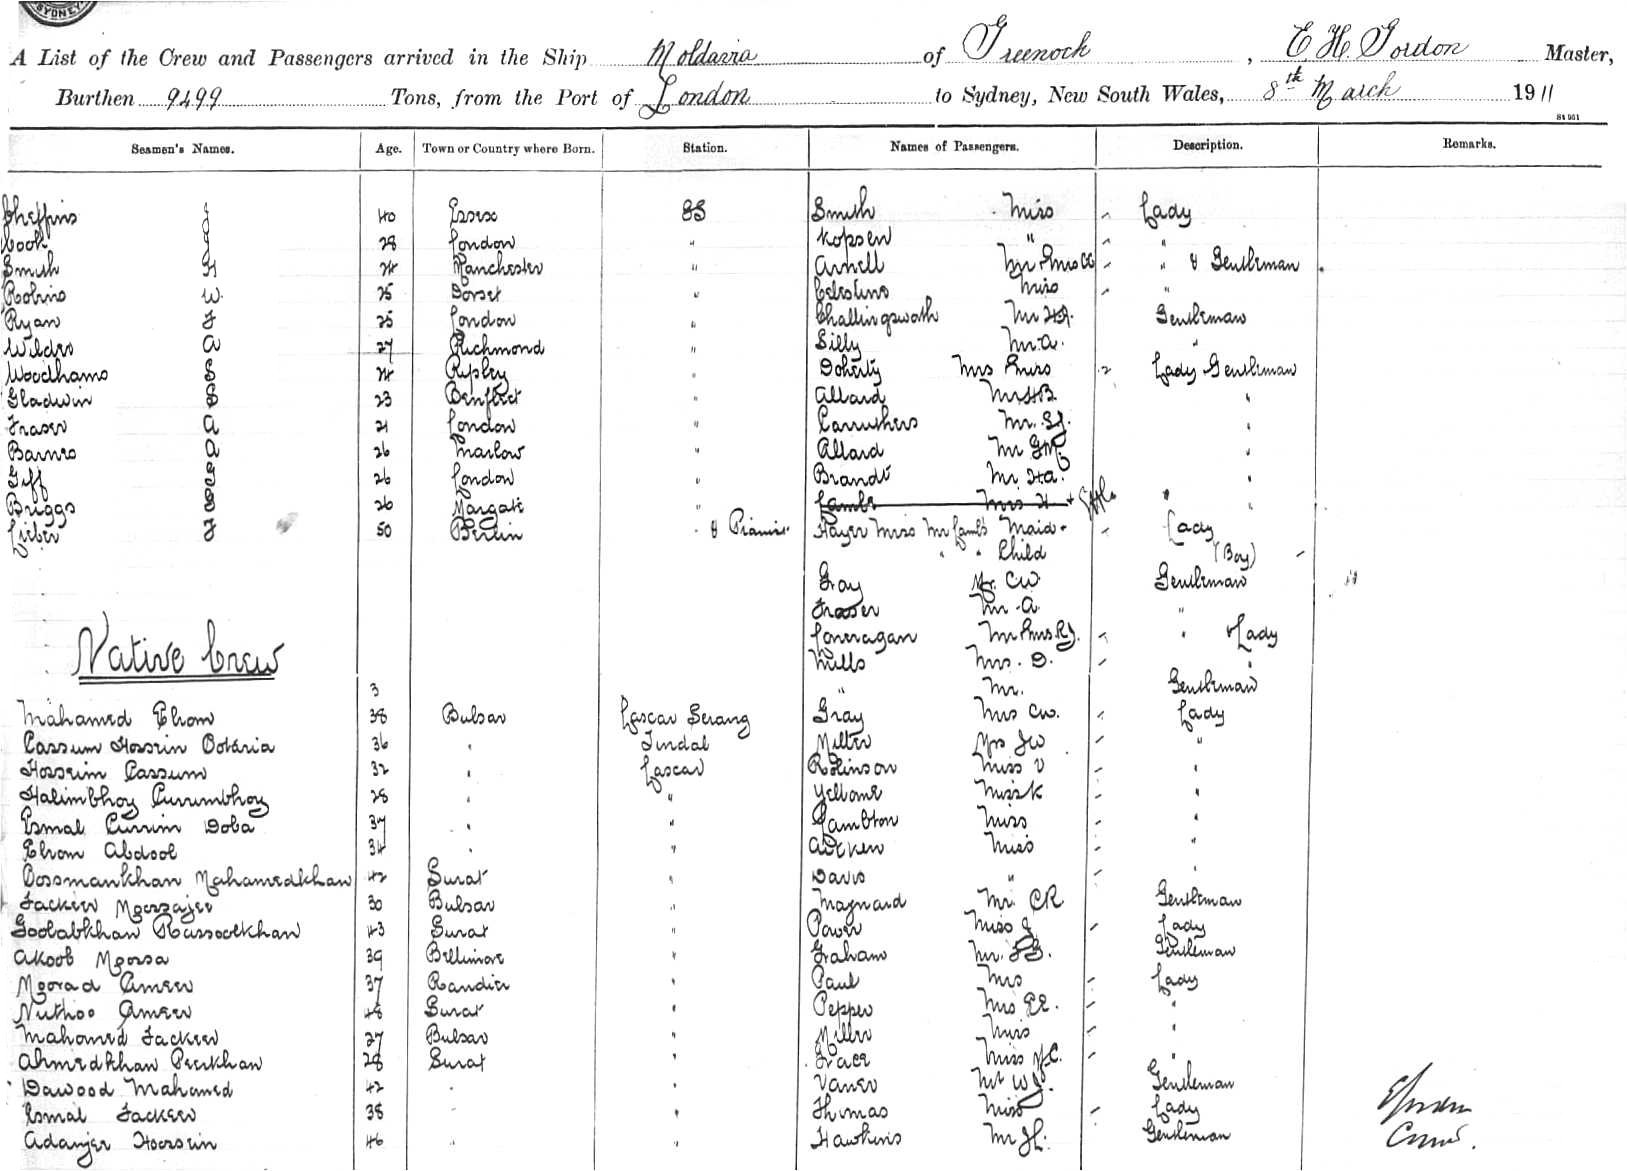 SYDNEY
A List of the Crew and Passengers arrived in the Ship Moldavia of Greenock, E. H. Gordon Master,
Burthen 9499 Tons, from the Port of London to Sydney, New South Wales, 8th March 1911
St 951
Seamen's Names. Age. Town or Country where Born. Station. Names of Passengers. Description. Remarks.
Cheffins J 40 Essex SS Smith Miss Lady
Cook J 28 London " Kopsen " "
Smith H 24 Manchester " Arnell Mr & Mrs " & Gentleman
Robins W. 25 Dorset " Celestine Miss "
Ryan F 25 London " Challingsworth Mr Gentleman
Wildes A 27 Richmond " Silly Mr. A. "
Woodhams S 24 Ripley " Doherty Mrs & Miss 2 Lady Gentleman
Gladwin 23 Benfleet " Allard Mr "
Fraser A 21 London " Carruthers Mr. "
Barnes A 26 Marlow " Allard Mr G.M. "
Giff G 26 London " Brandt Mr. H.A. "
Briggs 26 Margate " Lamb Mrs H "
Lieber F 50 Berlin " & Pianis Hayer Miss Mr Lamb's Maid Lady
" " Child (Boy)
Gray Mr. CW. Gentleman
Fraser Mr. A. "
Loneragan Mr & Mrs R.J. " & Lady
Native Crew
Mills Mrs. D. "
3 " Mr. Gentleman
Mahamed Ebrom 38 Bulsar Lascar Serang Gray Mrs CW. Lady
Cassum Hossein Botaria 36 " Tindal Miller Mrs JW "
Hosseim Cassum 32 " Lascar Robinson Miss V "
Halimbhoy Currumbhoy 28 " " Miss K "
Esmal Currim Doba 37 " " Lambton Miss "
Ebrom Abdool 34 " " Aitken Miss "
Oossmankhan Mahamedkhan 42 Surat " Davis " "
Fackeer Moosajee 30 Bulsar " Maynard Mr. CR Gentleman
Goolabkhan Rassoolkhan 43 Surat " Power Miss J Lady
Akoob Moosa 39 Billimore " Graham Mr. Gentleman
Moorad Ameer 37 Randir " Paul Mrs Lady
Nuthoo Ameer 48 Surat " Pepper Mrs E.E. "
Mahomed Fackeer 27 Bulsar " Miller Miss "
Ahmedkhan Peerkhan 28 Surat " Grace Miss "
Dawood Mahamed 42 " " Mr W.J. Gentleman
Esmal Fackeer 38 " Thomas Miss Lady
Adamjee Hoossein 46 " " Hawkins Mr Gentleman